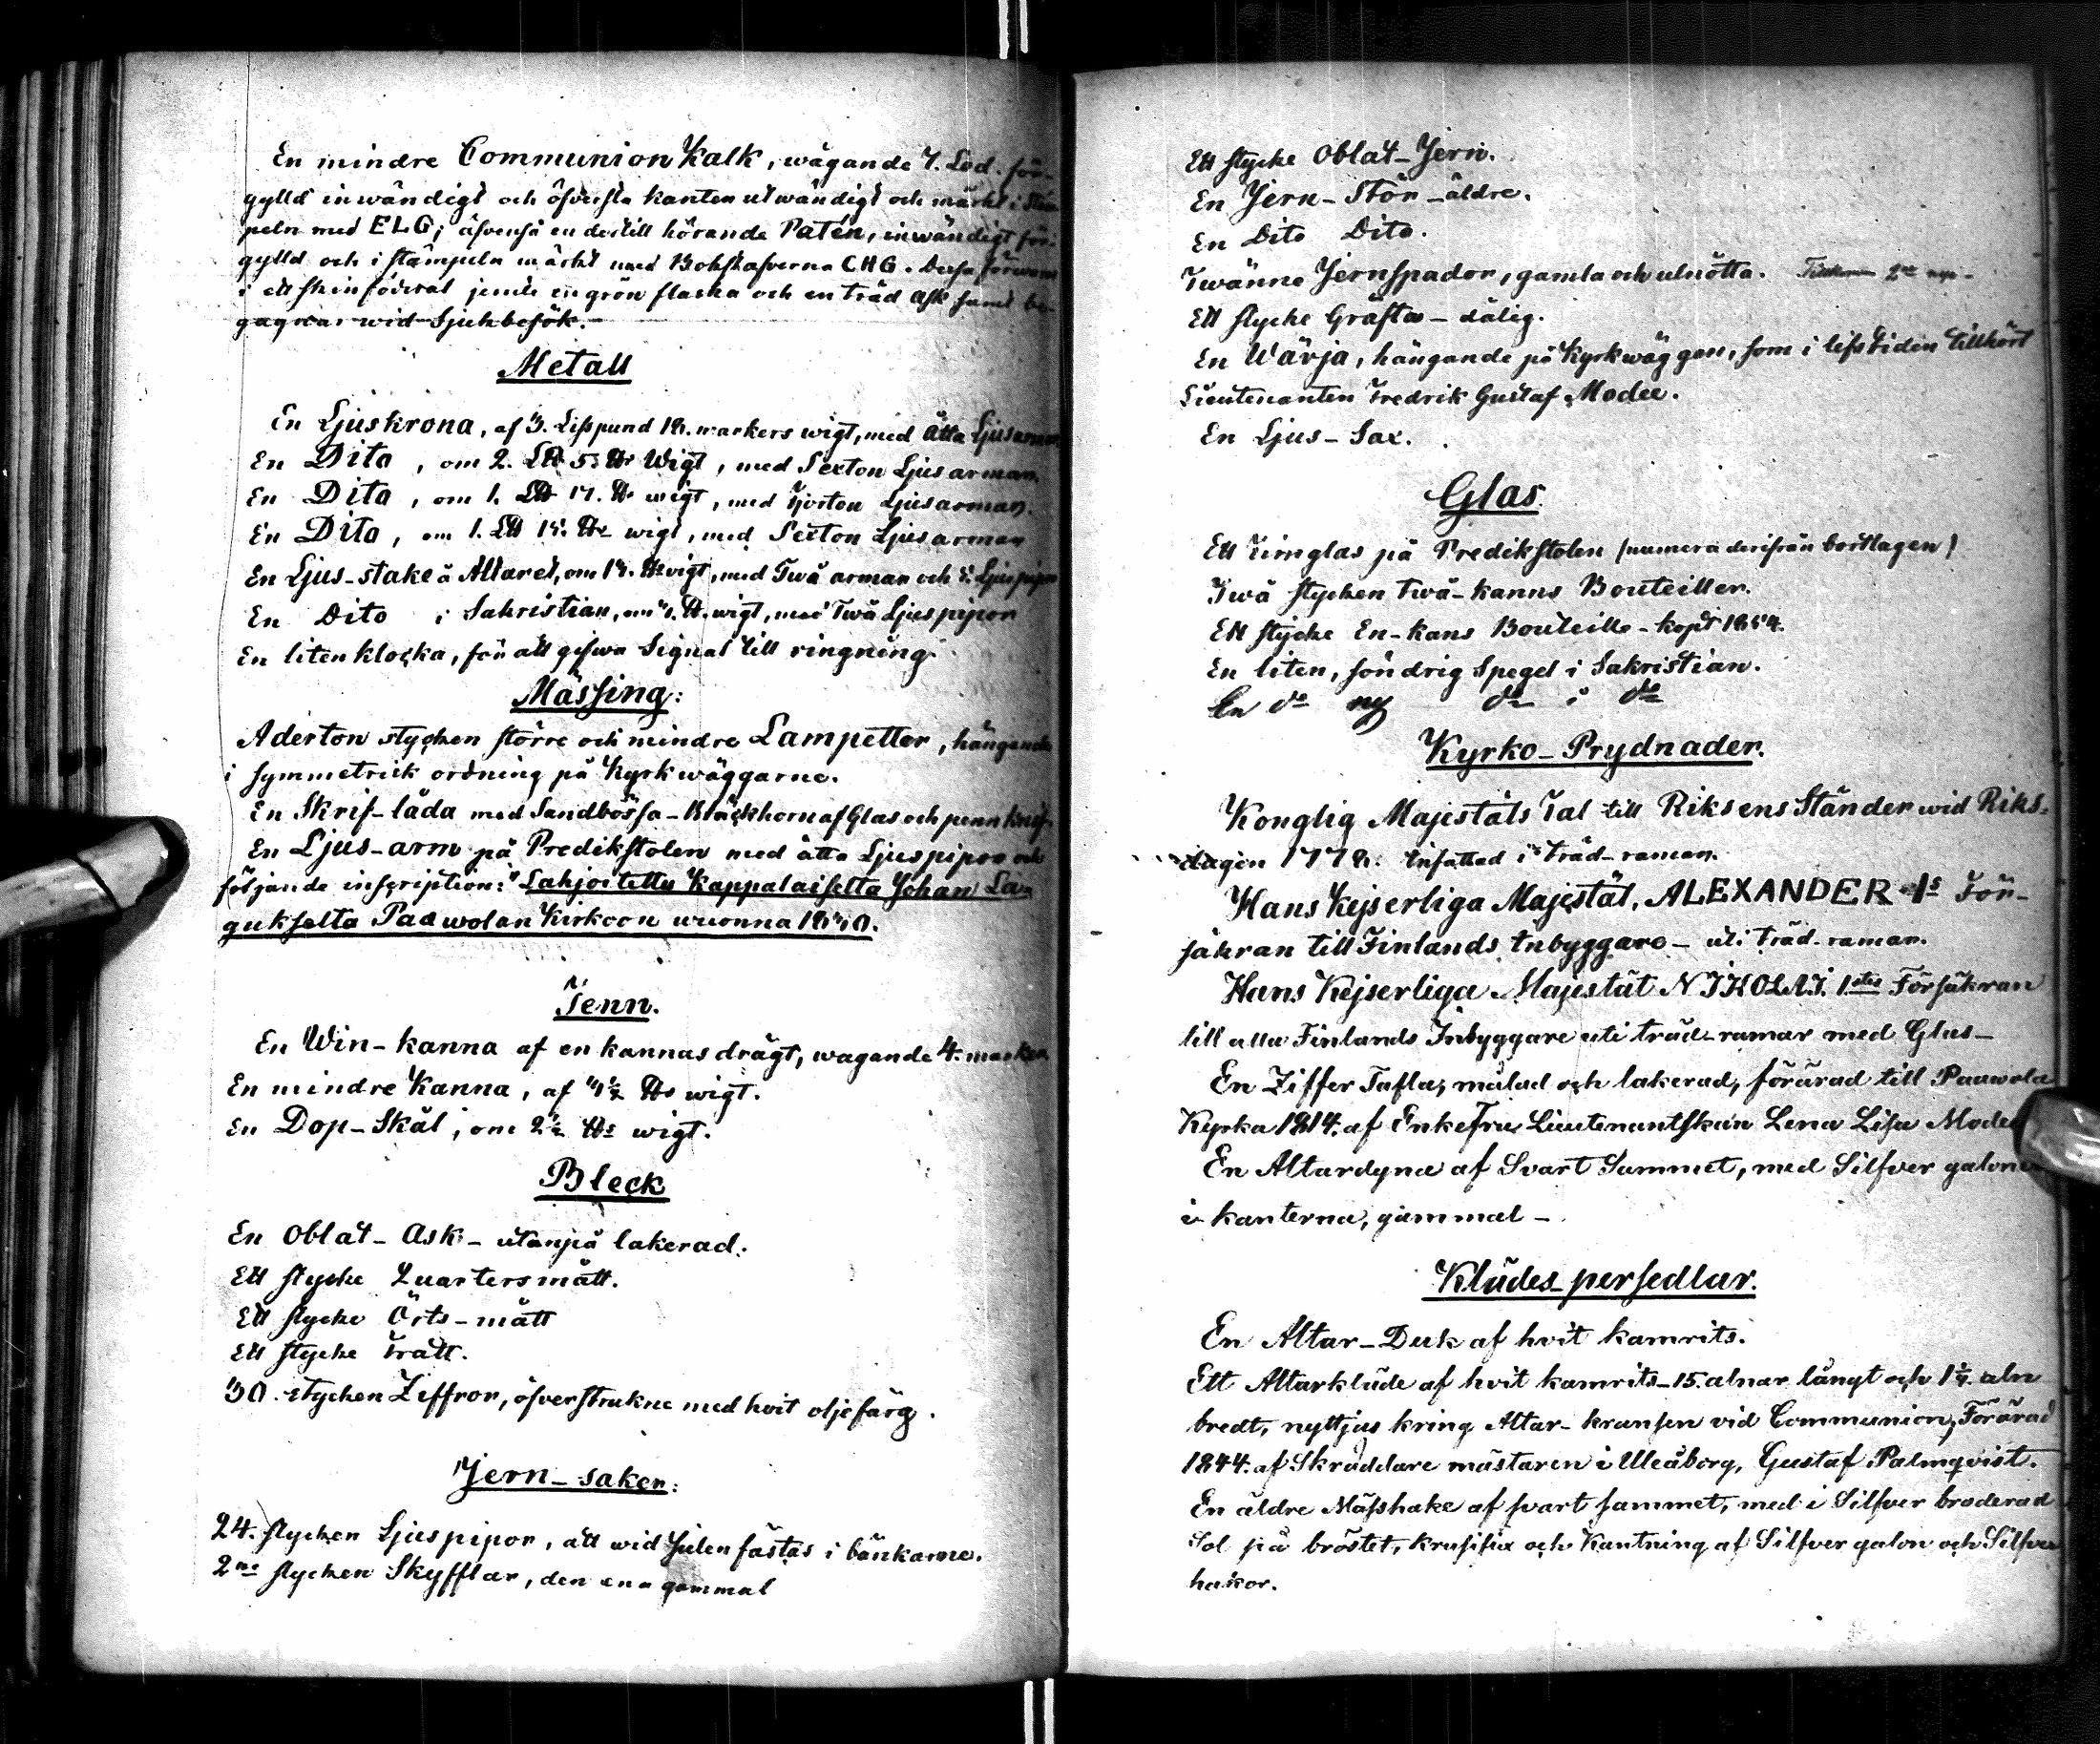 En mindre Communion Kalk, wägande 7. Lod. för-
gylld inwändigt och öfversta kanten utwändigt och märkt i Stäm
peln med ELG; äfvenså en dertill hörande Patén, inwändigt för-
gylld och i stämpeln märkt med Bokstafverna CHG. Dessa förwaras
i ett skinfodral jemte en grön flaska och en träd ask samt be-
gagnas wid Sjukbesök.
Metall
En Ljuskrona, af 3. Lispund 18. markers wigt, med åtta Ljusarmar
En Dito, om 2. L℔ 5. ℔r Wigt, med Sexton Ljusarmar.
En Dito, om 1. L℔ 17. ℔r wigt, med Fjorton Ljusarmar.
En Dito, om 1. L℔ 15. ℔r wigt, med Sexton Ljusarmar
En Ljus-stake å Altaret, om wigt, med Twå armar och Ljuspipor
En Dito i Sakristian, om ℔. wigt, med Twå Ljuspipor
En liten klocka, för att gifwa Signal till ringning.
Mässing:
Aderton stycken större och mindre Lampetter, hängande
i symmetrisk ordning på Kyrkwäggarne.
En Skrif-låda med Sandbössa-Bläckhorn af Glas och pennknif-
En Ljus-arm på Predikstolen med åtta Ljuspipor och
följande inscription: "Lahjoitettu Kappalaiselta Johan Lan
gukselta Paawolan Kirkoon wuonna 1840.
Tenn.
En Win-kanna af en kannas drägt, wägande 4. marker
En mindre Kanna, af 4½ ℔r wigt.
En Dop-Skål, om 2½ ℔r wigt.
Bleck
En Oblat-Ask-utanpå lakerad.
Ett stycke Quartersmått.
Ett stycke Örts-mått
Ett stycke Tratt.
30. stycken Ziffror, öfverstrukne med hvit oljefärg.
Jern-saker:
24. stycken Ljuspipor, att wid Julen fästas i bänkarne.
2ne stycken Skyfflar, den ena gammal
Ett stycke Oblat-Jern.
En Jern-Stör-äldre.
En Dito Dito.
Twänne Jernspador, gamla och utnötta. 2ne nya.
Ett stycke Gräfta-dålig.
En Wärja, hängande på Kyrkwäggen, som i lifstiden tillhört
Lieutenanten Fredrik Gustaf Modee.
En Ljus-Sax.
Glas
Ett Timglas på Predikstolen (numera derifrån borttagen)
Twå stycken twå-kanns Bouteiller.
Ett stycke En-kans Bouteille-köpt 1854.
En liten, söndrig Spegel i Sakristian.
En do ny do i do
Kyrko-Prydnader.
Konglig Majestäts Tal till Riksens Ständer wid Riks-
dagen 1778. Infattad i träd-ramar.
Hans Kejserliga Majestät, ALEXANDER Is För-
säkran till Finlands Inbyggare-uti träd-ramar.
Hans Kejserliga Majestät NIKOLAI. 1stes Försäkran
till alla Finlands Inbyggare uti träd-ramar med Glas-
En Ziffer Tafla, målad och lakerad, förärad till Paawola
Kyrka 1814. af Enkefru Lieutenantskan Lena Lisa Modee
En Altardyna af Svart Sammet, med Silfver galoner
i kanterna, gammal-.
Klädes-persedlar.
En Altar-Duk af hvit kamrits.
Ett Altarkläde af hvit kamrits-15. alnar långt och 1¼. aln
bredt, nyttjas kring Altar-kransen vid Communion, Förärad
1844. af Skräddare mästaren i Uleåborg, Gustaf Palmqvist.
En äldre Mässhake af svart sammet, med i Silfver broderad
Sol på bröstet, krusifix och Kantning af Silfver galon och Silfver
hakor.